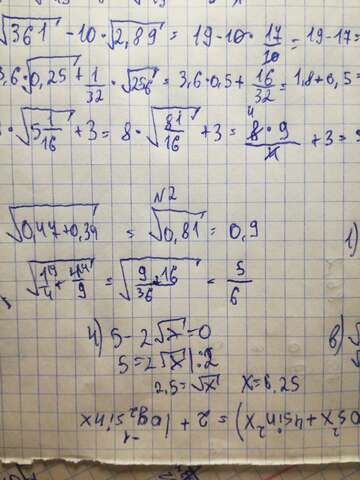 √361 - 10·√2,89 = 19 - 10·17/10 = 19 - 17 =
3,6·√0,25 + 1/32·√256 = 3,6·0,5 + 16/32 = 1,8 + 0,5 =
·√5 1/16 + 3 = 8·√81/16 + 3 = 8·9/4 + 3 =
N2
√0,47+0,34 = √0,81 = 0,9
√1/4 + 4/9 = √9+16/36 = 5/6
1)
4) 5 - 2√x = 0
в)
5 = 2√x |:2
2,5 = √x x = 6,25
os²x + 4sin²x) = 2 + log₂⁻¹ sinx